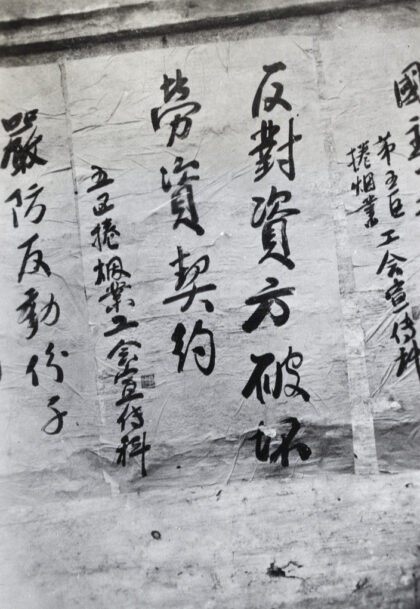 國
第五区工会宣传科
捲烟業
反對資方破坏
勞資契約
五区捲烟業工会宣传科
嚴防反動份子